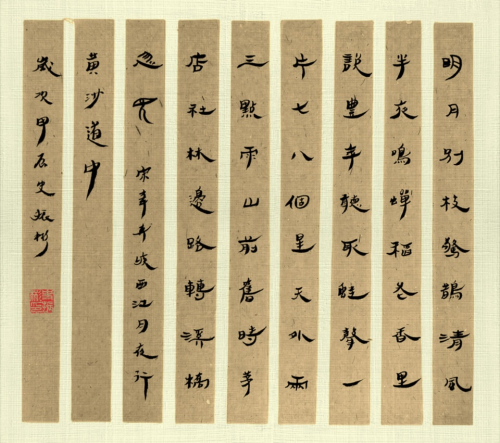 明月別枝驚鵲清風
半夜鳴蟬稻花香里
說豐年聽取蛙聲一
片七八個星天外兩
三點雨山前舊時茅
店社林邊路轉溪橋
忽見 宋辛弃疾西江月夜行
黄沙道中
歲次甲辰史